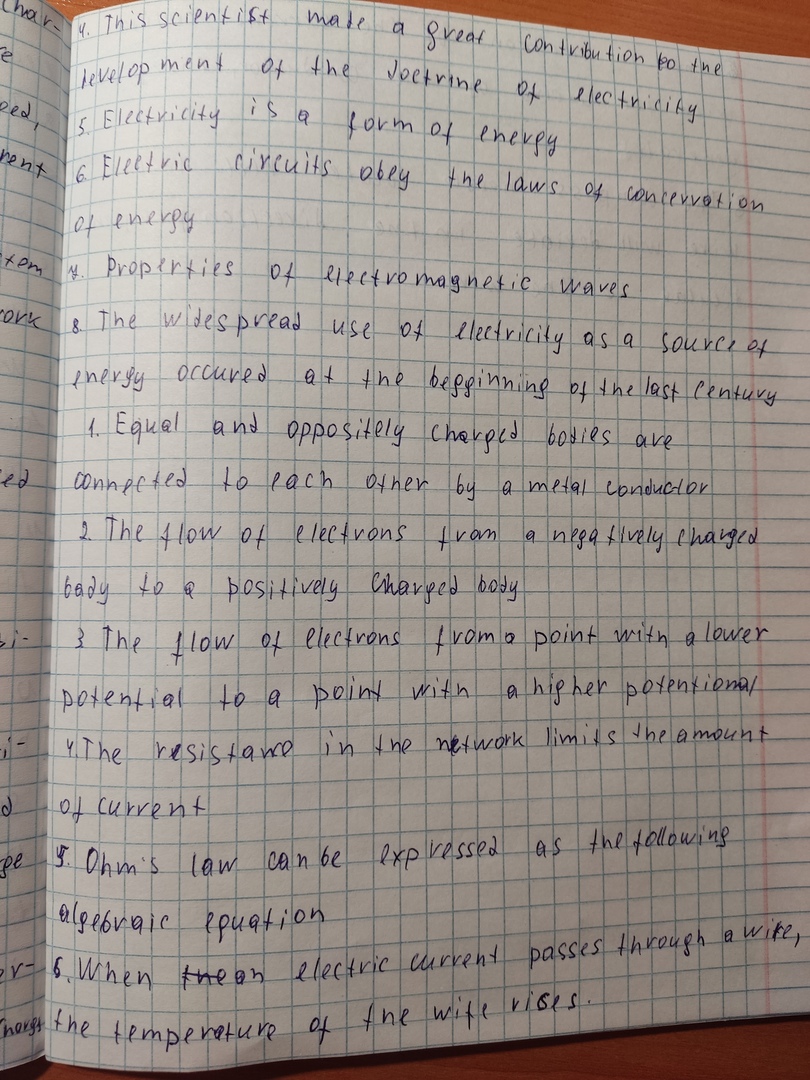 Char-
4. This scientist made a great contribution to the
development of the doctrine of electricity
5. Electricity is a form of energy
6. Electric circuits obey the laws of concervation
of energy
7. Properties of electromagnetic waves
8. The widespread use of electricity as a source of
energy occured at the begginning of the last century
1. Equal and oppositely charged bodies are
connected to each other by a metal conductor
2. The flow of electrons from a negatively charged
body to a positively charged body
3 The flow of electrons from a point with a lower
potential to a point with a higher potentional
4. The resistance in the network limits the amount
of current
5. Ohm's law can be expressed as the following
algebraic equation
6. When an electric current passes through a wire,
the temperature of the wire rises.